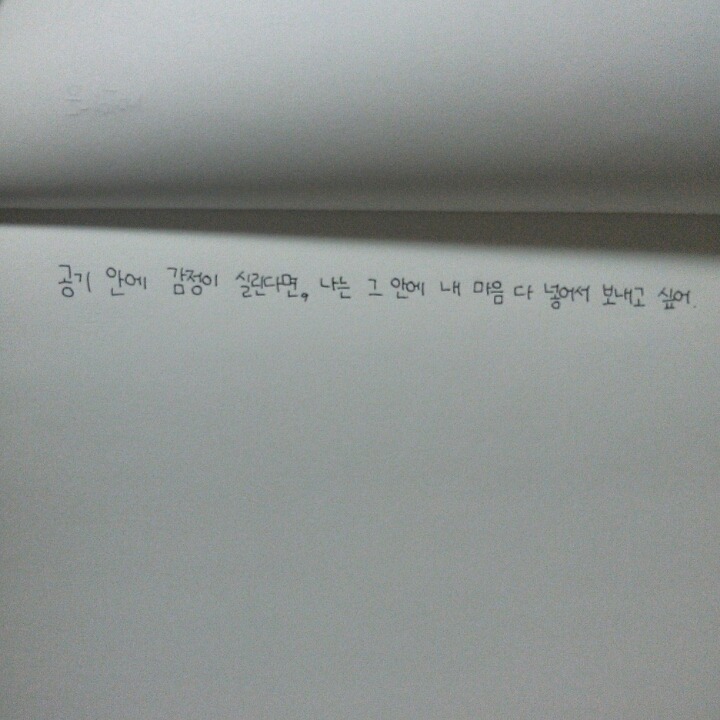 공기 안에 감정이 실린다면, 나는 그 안에 내 마음 다 넣어서 보내고 싶어.